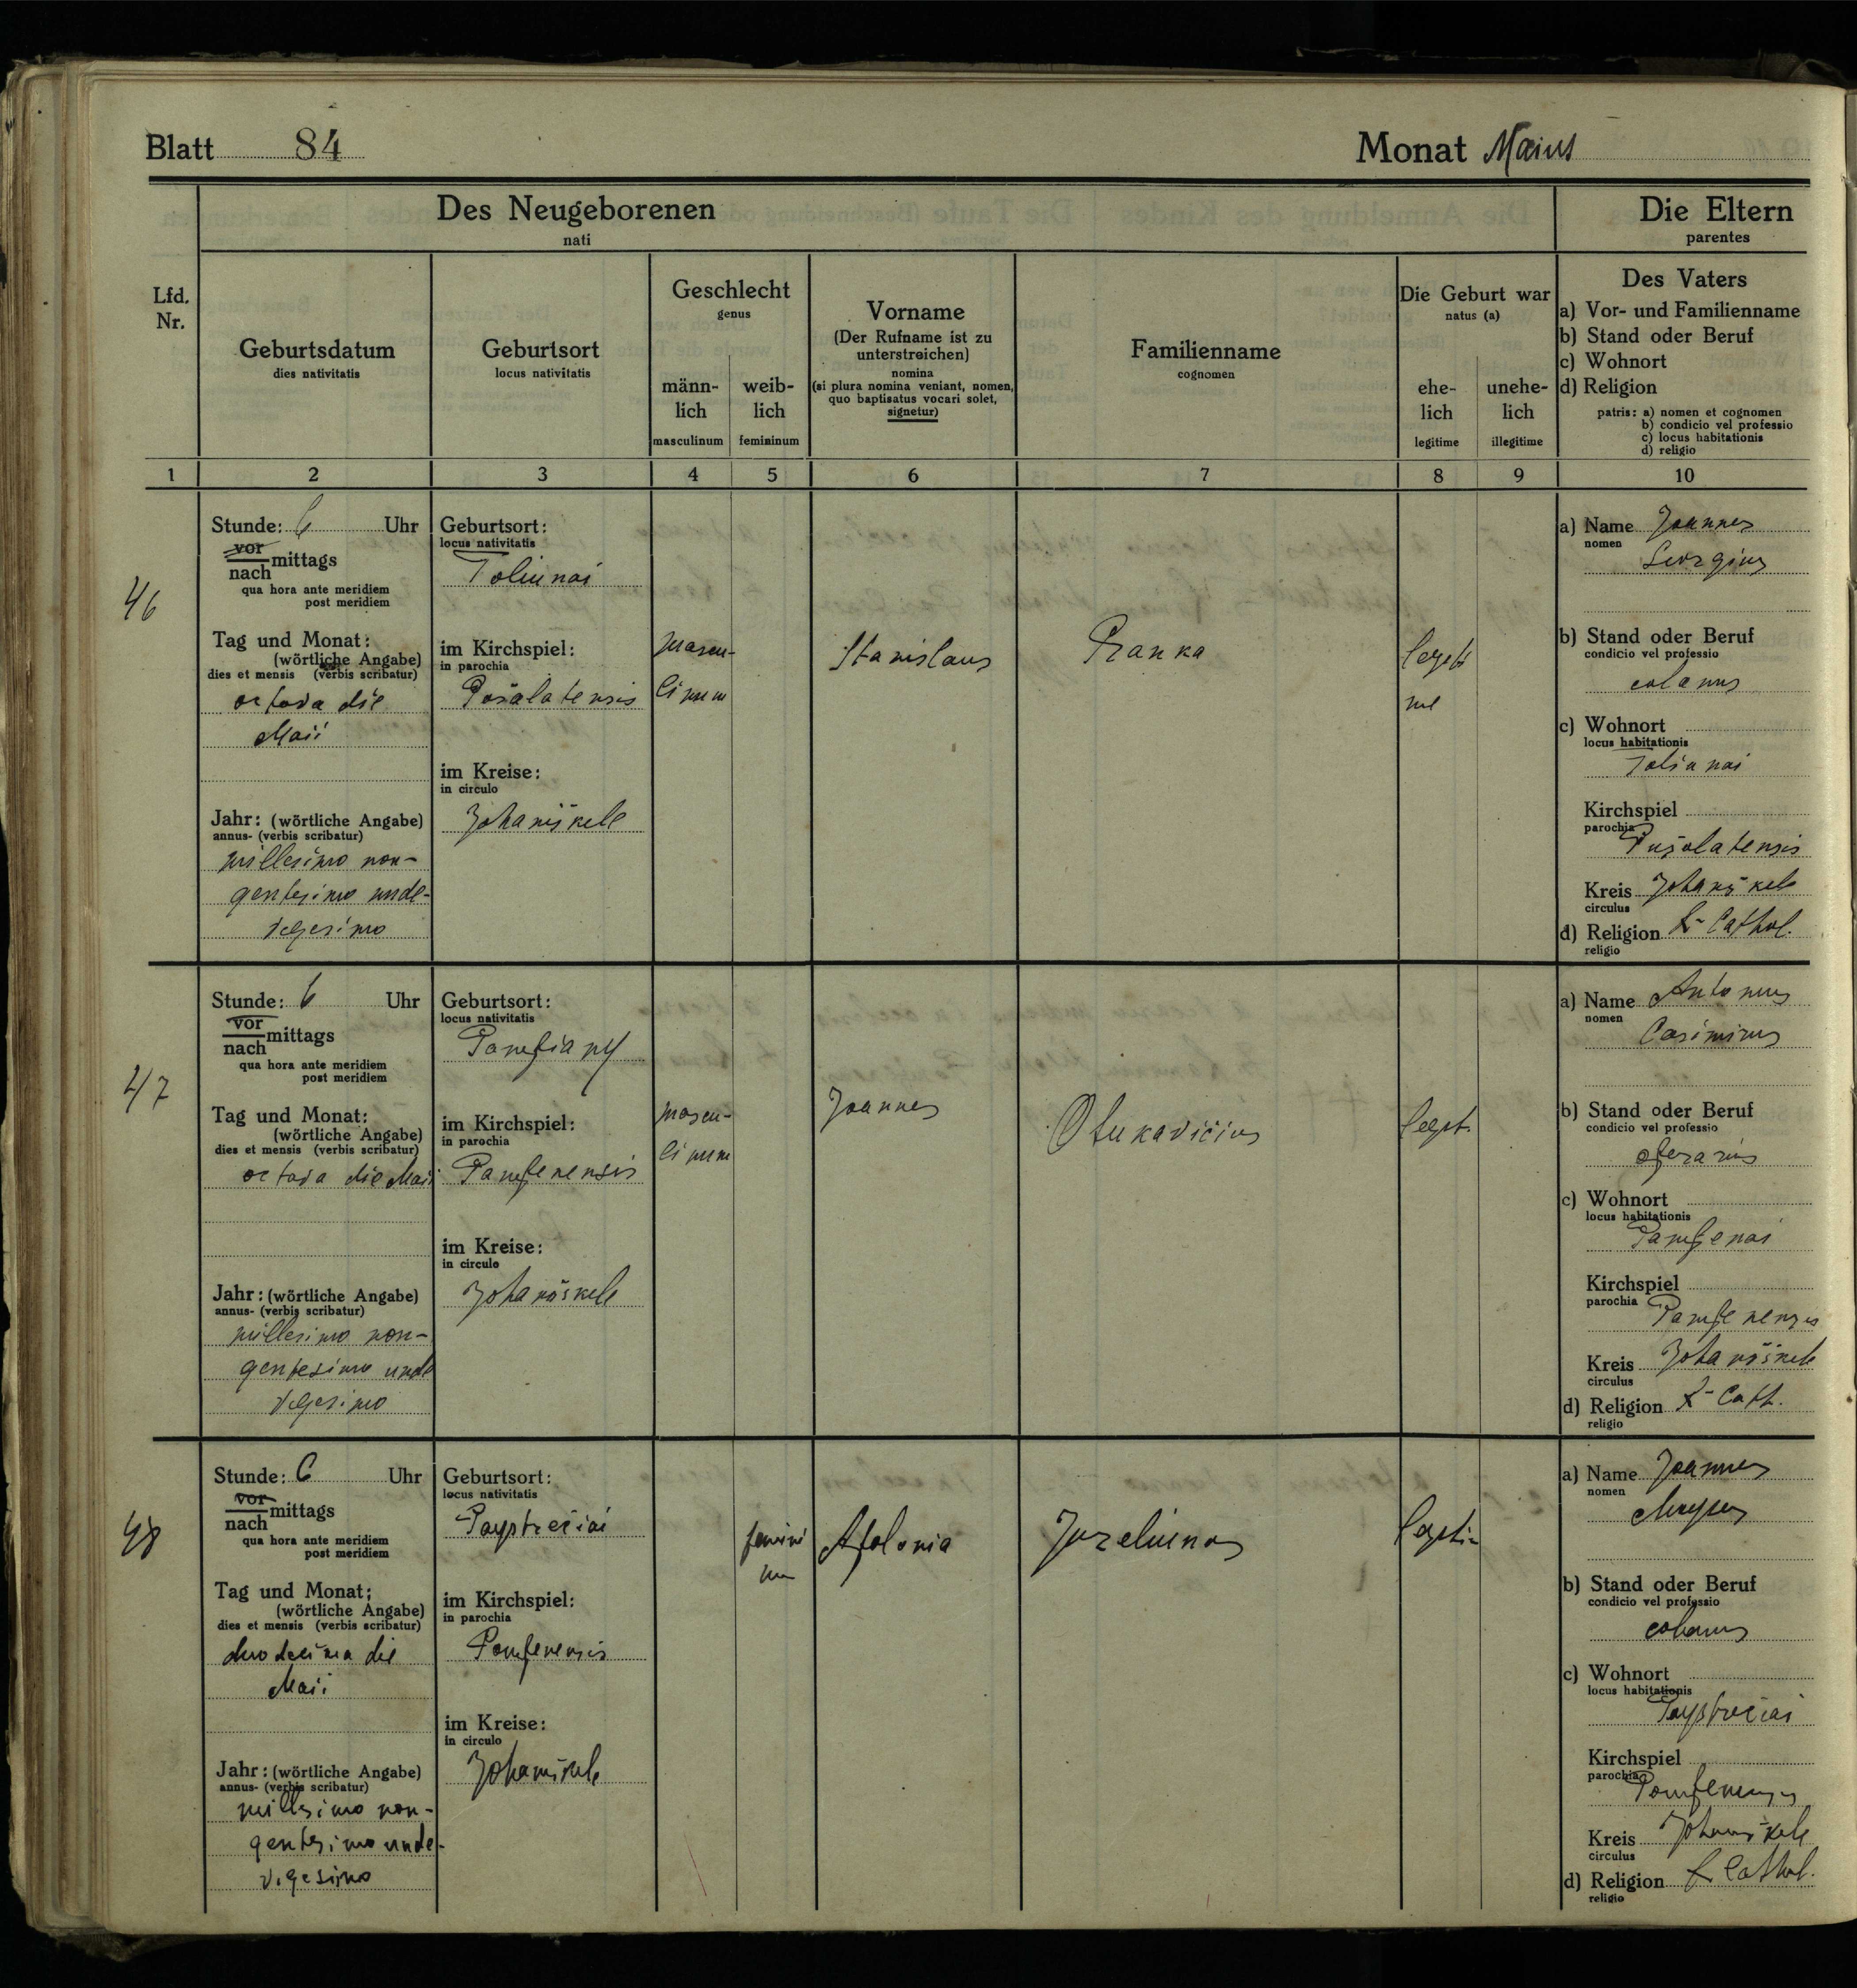 Blatt 84
Monat Maius
Des Neugeborenen
nati
Die Eltern
parentes
Lfd.
Nr.
Geburtsdatum
dies nativitatis
Geburtsort
locus nativitatis
Geschlecht
genus
männ-
lich
masculinum
weib-
lich
femininum
Vorname
(Der Rufname ist zu
unterstreichen)
nomina
(si plura nomina veniant, nomen,
quo baptisatus vocari solet,
signetur)
Familienname
cognomen
Die Geburt war
natus (a)
ehe-
lich
legitime
unehe-
lich
illegitime
Des Vaters
a) Vor- und Familienname
b) Stand oder Beruf
c) Wohnort
d) Religion
patris: a) nomen et cognomen
b) condicio vel professio
c) locus habitationis
d) religio
1 2 3 4 5 6 7 8 9 10
46
Stunde: 6 Uhr
vor
nach mittags
qua hora ante meridiem
post meridiem
Tag und Monat:
(wörtliche Angabe)
dies et mensis (verbis scribatur)
octava die
Maii
Jahr: (wörtliche Angabe)
annus- (verbis scribatur)
millesimo non-
gentesimo unde-
vigesimo
Geburtsort:
locus nativitatis
Toliunai
im Kirchspiel:
in parochia
Pošalatensis
im Kreise:
in circulo
Johaniškele
mascu-
linum
Stanislaus
Pranka
legiti
me
a) Name Joannes
nomen
Georgius
b) Stand oder Beruf
condicio vel professio
colonus
c) Wohnort
locus habitationis
Toliunai
Kirchspiel
parochia
Pušalatensis
Kreis Johaniškele
circulus
d) Religion R-Cathol.
religio
47
Stunde: 6 Uhr
vor
nach mittags
qua hora ante meridiem
post meridiem
Tag und Monat:
(wörtliche Angabe)
dies et mensis (verbis scribatur)
octava die Maii
Jahr: (wörtliche Angabe)
annus- (verbis scribatur)
millesimo non-
gentesimo unde
vigesimo
Geburtsort:
locus nativitatis
im Kirchspiel:
in parochia
Pampenensis
im Kreise:
in circulo
Johaniškele
mascu-
linum
Joannes
Otukavičius
legit.
a) Name Antonius
nomen
Casimirus
b) Stand oder Beruf
condicio vel professio
operarius
c) Wohnort
locus habitationis
Pampenai
Kirchspiel
parochia
Pampenensis
Kreis Johaniškele
circulus
d) Religion R-Cath.
religio
48
Stunde: 6 Uhr
vor
nach mittags
qua hora ante meridiem
post meridiem
Tag und Monat:
(wörtliche Angabe)
dies et mensis (verbis scribatur)
duodecima die
Maii
Jahr: (wörtliche Angabe)
annus- (verbis scribatur)
millesimo non-
gentesimo unde-
vigesimo
Geburtsort:
locus nativitatis
Paystrečiai
im Kirchspiel:
in parochia
Pompenensis
im Kreise:
in circulo
Johaniškele
femini
num
Apolonia
Jozeliunas
legiti-
a) Name Joannes
nomen
b) Stand oder Beruf
condicio vel professio
colonus
c) Wohnort
locus habitationis
Paystrečiai
Kirchspiel
parochia
Pompenensis
Kreis Johaniškele
circulus
d) Religion R Cathol.
religio